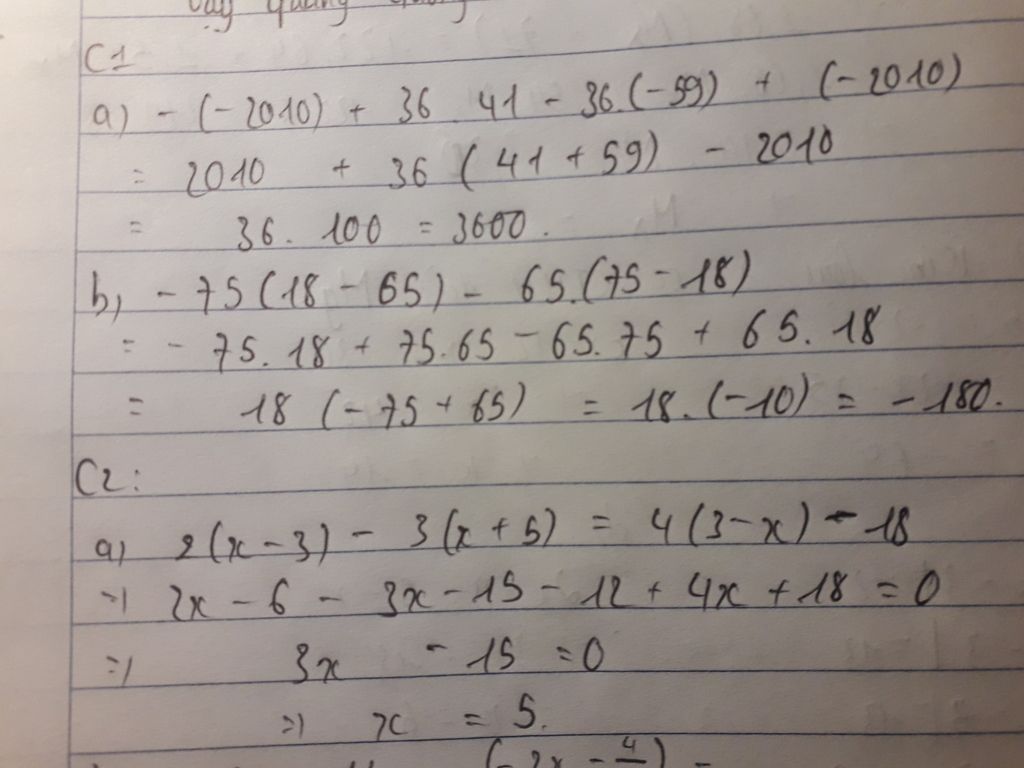 C1
a) - (-2010) + 36 41 - 36.(-59) + (-2010)
= 2010 + 36 (41 + 59) - 2010
= 36. 100 = 3600.
b, - 75(18 - 65) - 65.(75 - 18)
= - 75. 18 + 75.65 - 65. 75 + 65. 18
= 18 (- 75 + 65) = 18. (-10) = - 180.
C2:
a) 2(x - 3) - 3(x + 5) = 4(3 - x) - 18
=) 2x - 6 - 3x - 15 - 12 + 4x + 18 = 0
=) 3x - 15 = 0
=) x = 5.
(- 2x - 4